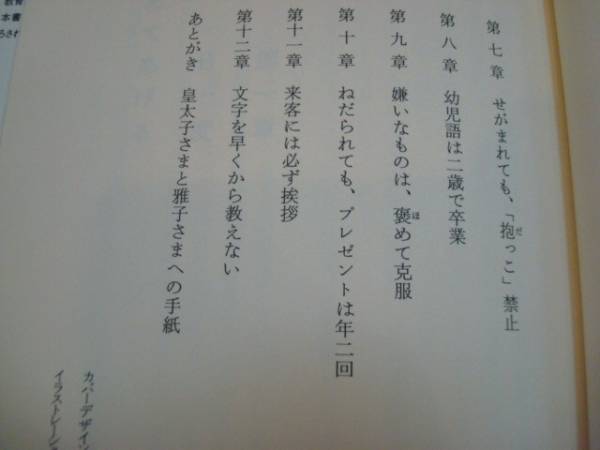 第七章 せがまれても、「抱っこ」禁止
第八章 幼児語は二歳で卒業
第九章 嫌いなものは、褒めて克服
第十章 ねだられても、プレゼントは年二回
第十一章 来客には必ず挨拶
第十二章 文字を早くから教えない
あとがき 皇太子さまと雅子さまへの手紙
カバーデザイン
イラストレーション